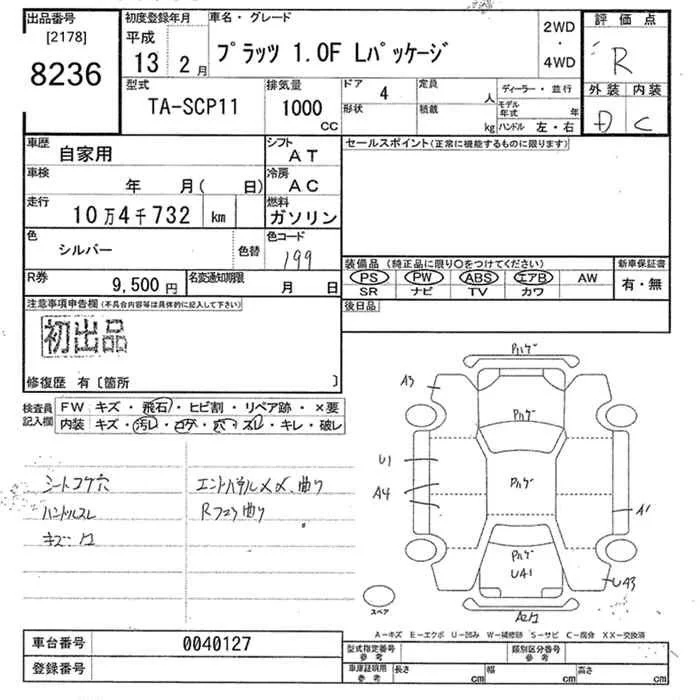 出品番号
[2178]
8236
初度登録年月
平成
13 2月
車名・グレード
プラッツ 1.0F Lパッケージ
2WD
・
4WD
評価点
R
外装 内装
D C
型式
TA-SCP11
排気量
1000
CC
ドア
4
形状
定員
人
積載
kg
ディーラー・並行
モデル年式 年
ハンドル 左・右
車歴
自家用
シフト
AT
車検
年 月( 日)
冷房
AC
走行
10万4千732 km
燃料
ガソリン
色
シルバー
色替
色コード
199
R券
9,500円
名変通知期限
月 日
セールスポイント(正常に機能するものに限ります)
装備品 (純正品に限り○をつけてください)
PS PW ABS エアB AW
SR ナビ TV カワ
新車保証書
有・無
後日品
注意事項申告欄(不具合内容等は具体的に記入して下さい)
初出品
修復歴 有〔箇所 〕
検査員
記入欄
FW キズ・飛石・ヒビ割・リペア跡・×要
内装 キズ・汚レ・コゲ・穴・スレ・キレ・破レ
シートコゲ穴
ハンドルスレ
エンドパネル〆〆、曲り
Rフロア曲り
Pハゲ
A3
Pハゲ
U1
A4
Pハゲ
A1
Pハゲ
UA1
UA3
スペア
A-キズ E-エクボ U-凹み W-補修跡 S-サビ C-腐食 XX-交換済
車台番号
0040127
登録番号
型式指定番号
参考
類別区分番号
参考
車庫証明用
参考
長さ cm
幅 cm
高さ cm